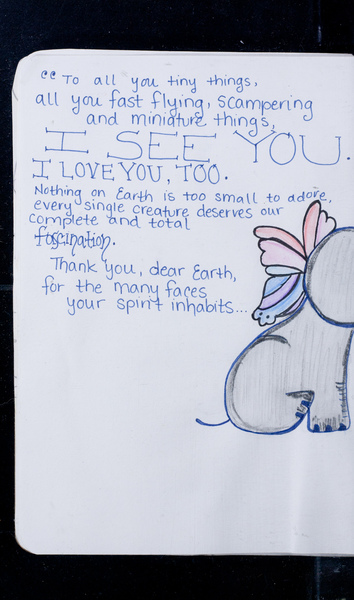 “To all you tiny things,
all you fast flying, scampering
and miniature things,
I SEE YOU.
I LOVE YOU, TOO.
Nothing on Earth is too small to adore,
every single creature deserves our
complete and total
fascination.
Thank you, dear Earth,
for the many faces
your spirit inhabits...